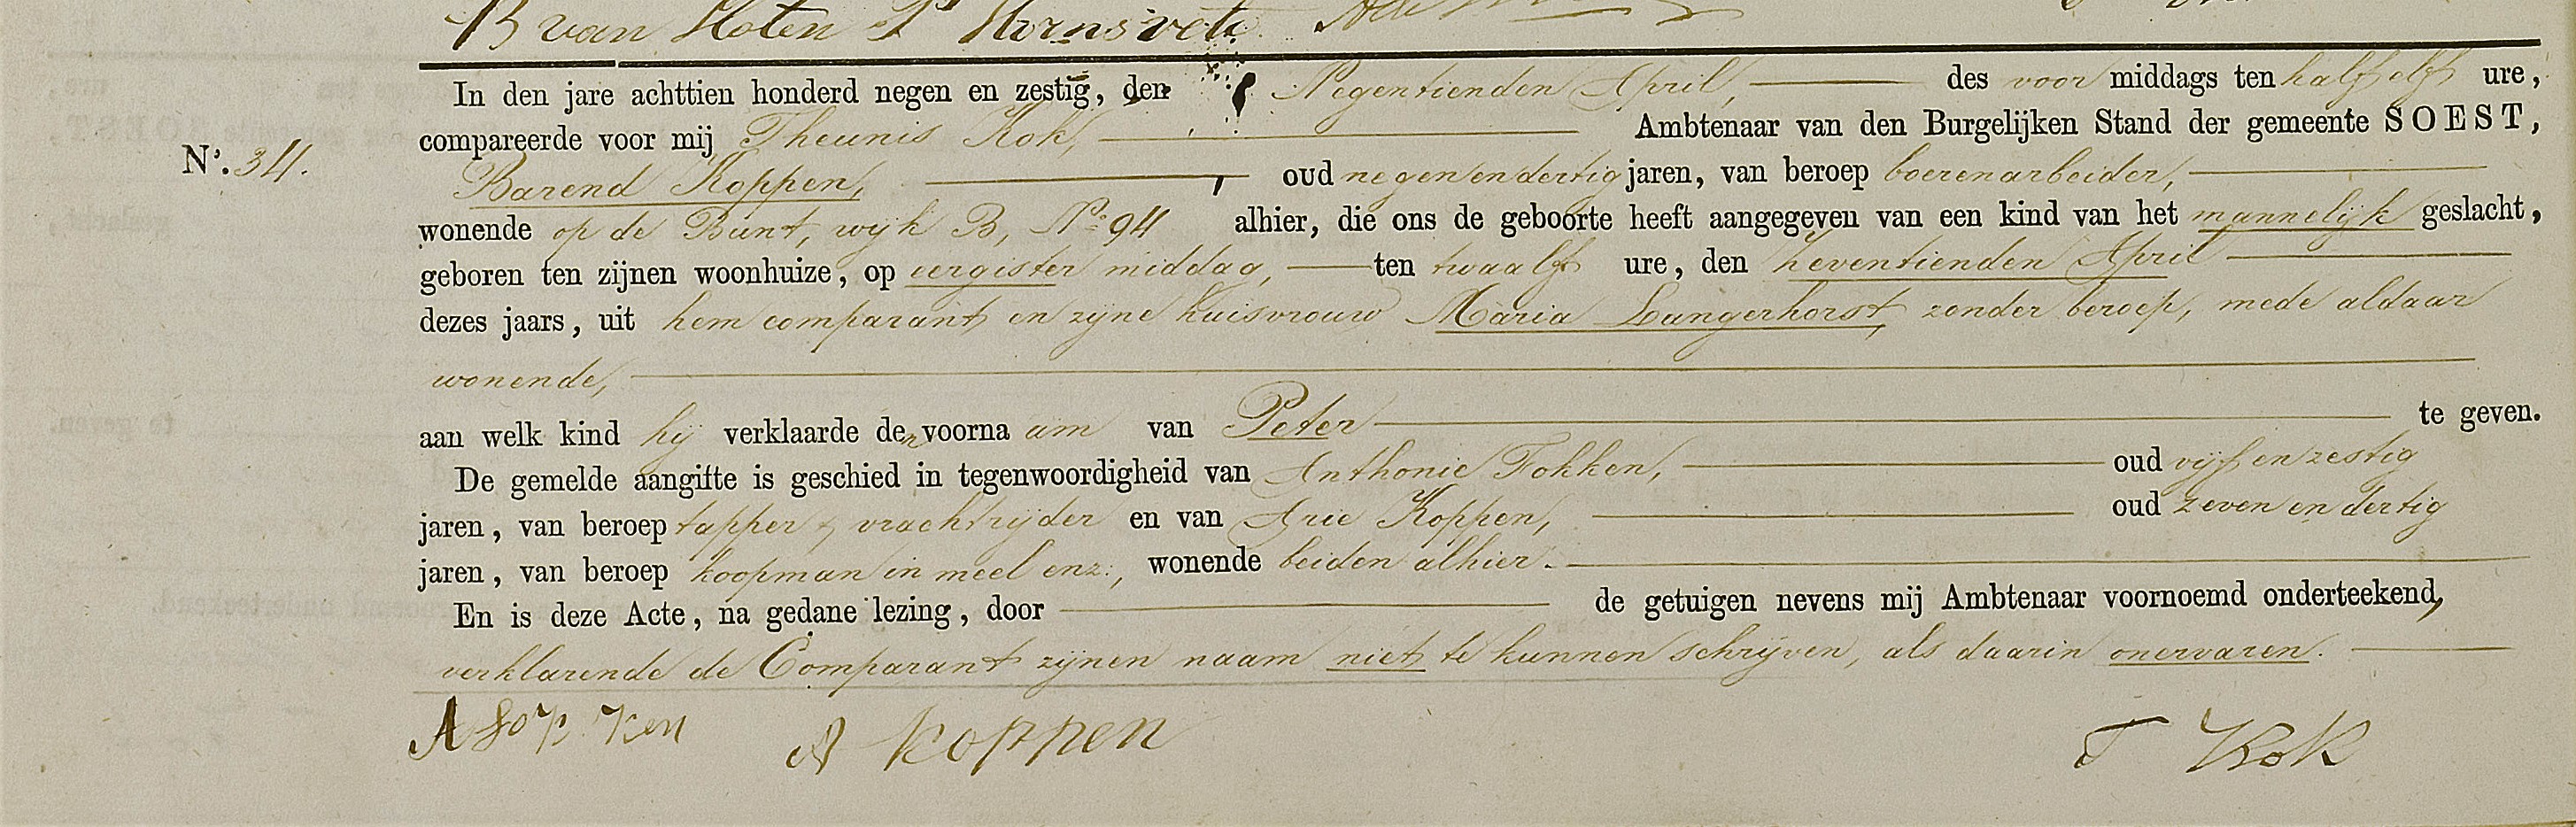 B van Hoten P Hornsveld
In den jare achttien honderd negen en zestig, den Negentienden April, des voor middags ten half elf ure,
compareerde voor mij Theunis Kok, Ambtenaar van den Burgelijken Stand der gemeente SOEST,
N°. 34.
Barend Koppen, oud negen en dertig jaren, van beroep boerenarbeider,
wonende op de Bunt, wyk B, N° 94 alhier, die ons de geboorte heeft aangegeven van een kind van het mannelijk geslacht,
geboren ten zijnen woonhuize, op eergister middag, ten twaalf ure, den zeventienden April
dezes jaars, uit hem comparant en zyne huisvrouw Maria Langerhorst, zonder beroep, mede aldaar
wonende,
aan welk kind hij verklaarde den voorna am van Peter te geven.
De gemelde aangifte is geschied in tegenwoordigheid van Anthonie Fokken, oud vyf en zestig
jaren, van beroep tapper & vrachtryder en van Arie Koppen, oud zeven en dertig
jaren, van beroep koopman in meel enz:, wonende beiden alhier.
En is deze Acte, na gedane lezing, door de getuigen nevens mij Ambtenaar voornoemd onderteekend,
verklarende de Comparant zynen naam niet te kunnen schryven, als daarin onervaren.
A Fokken A Koppen T Kok